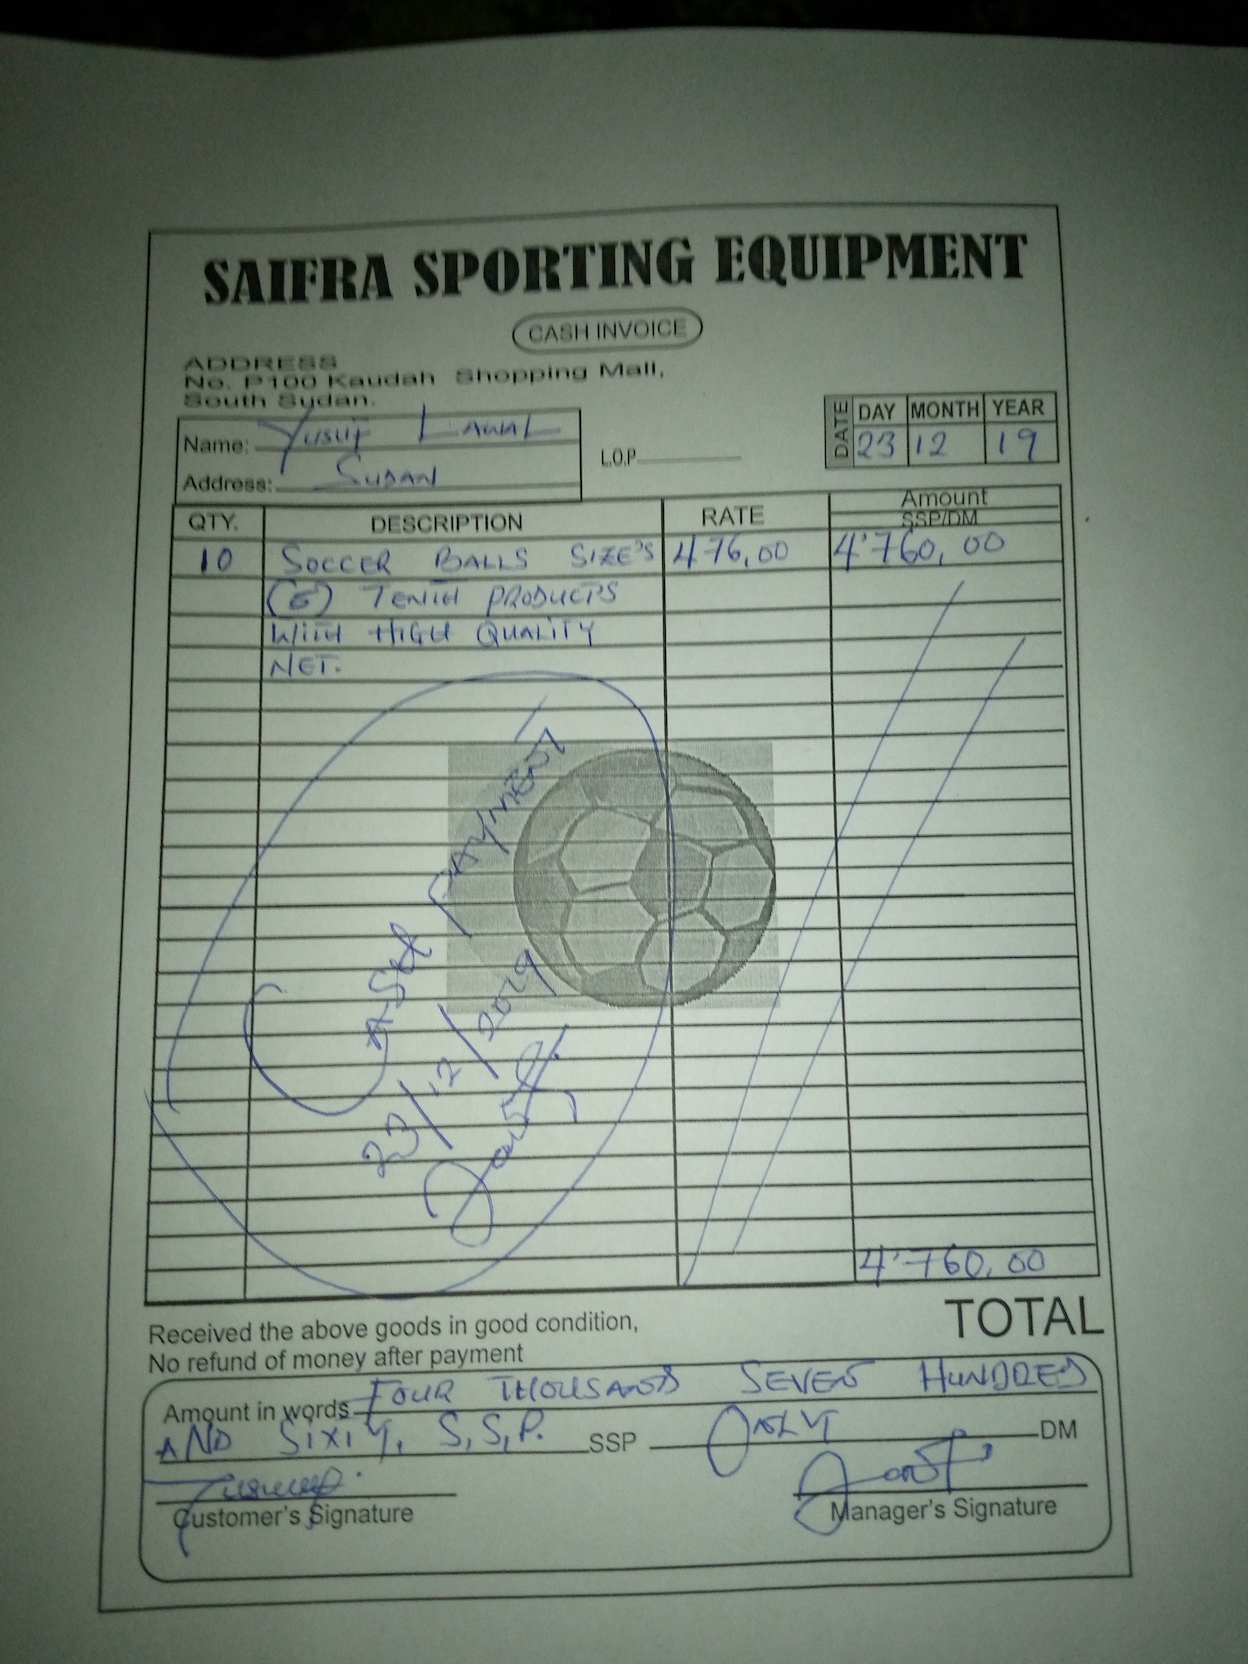 SAIFRA SPORTING EQUIPMENT
CASH INVOICE
ADDRESS
No. P100 Kaudah Shopping Mall,
South Sudan.
Name: Yusuf Lawal
Address: SUDAN
L.O.P
DATE DAY MONTH YEAR
23 12 19
QTY. DESCRIPTION RATE Amount SSP/DM
10 SOCCER BALLS SIZE'S 476,00 4'760,00
(5) TENTH PRODUCTS
WITH HIGH QUALITY
NET.
CASH PAYMENT
23/12/2019
4'760,00
TOTAL
Received the above goods in good condition,
No refund of money after payment
Amount in words FOUR THOUSAND SEVEN HUNDRED
AND SIXTY, S,S,P. SSP ONLY DM
Customer's Signature
Manager's Signature